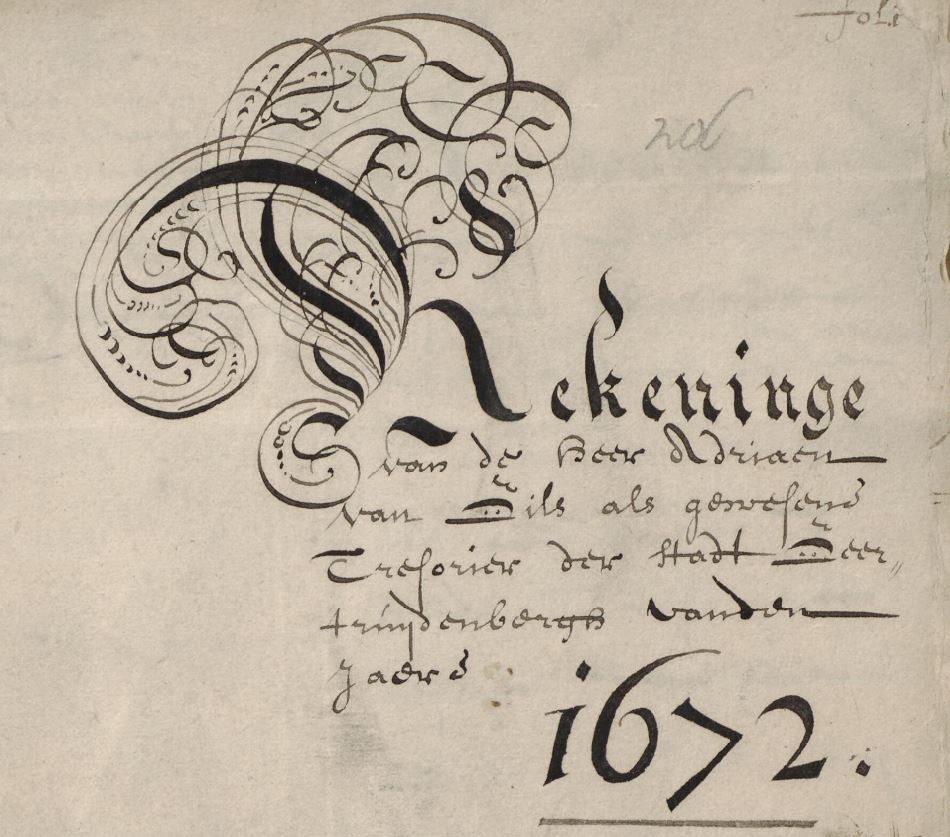 foli
206
Rekeninge
van de Heer Adriaen
van Gils als gewesene
Tresorier der stadt Geer„
truijdenbergh vanden
Jaere
1672.